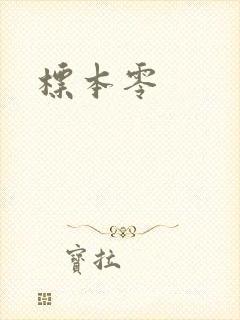 標本零
寶拉